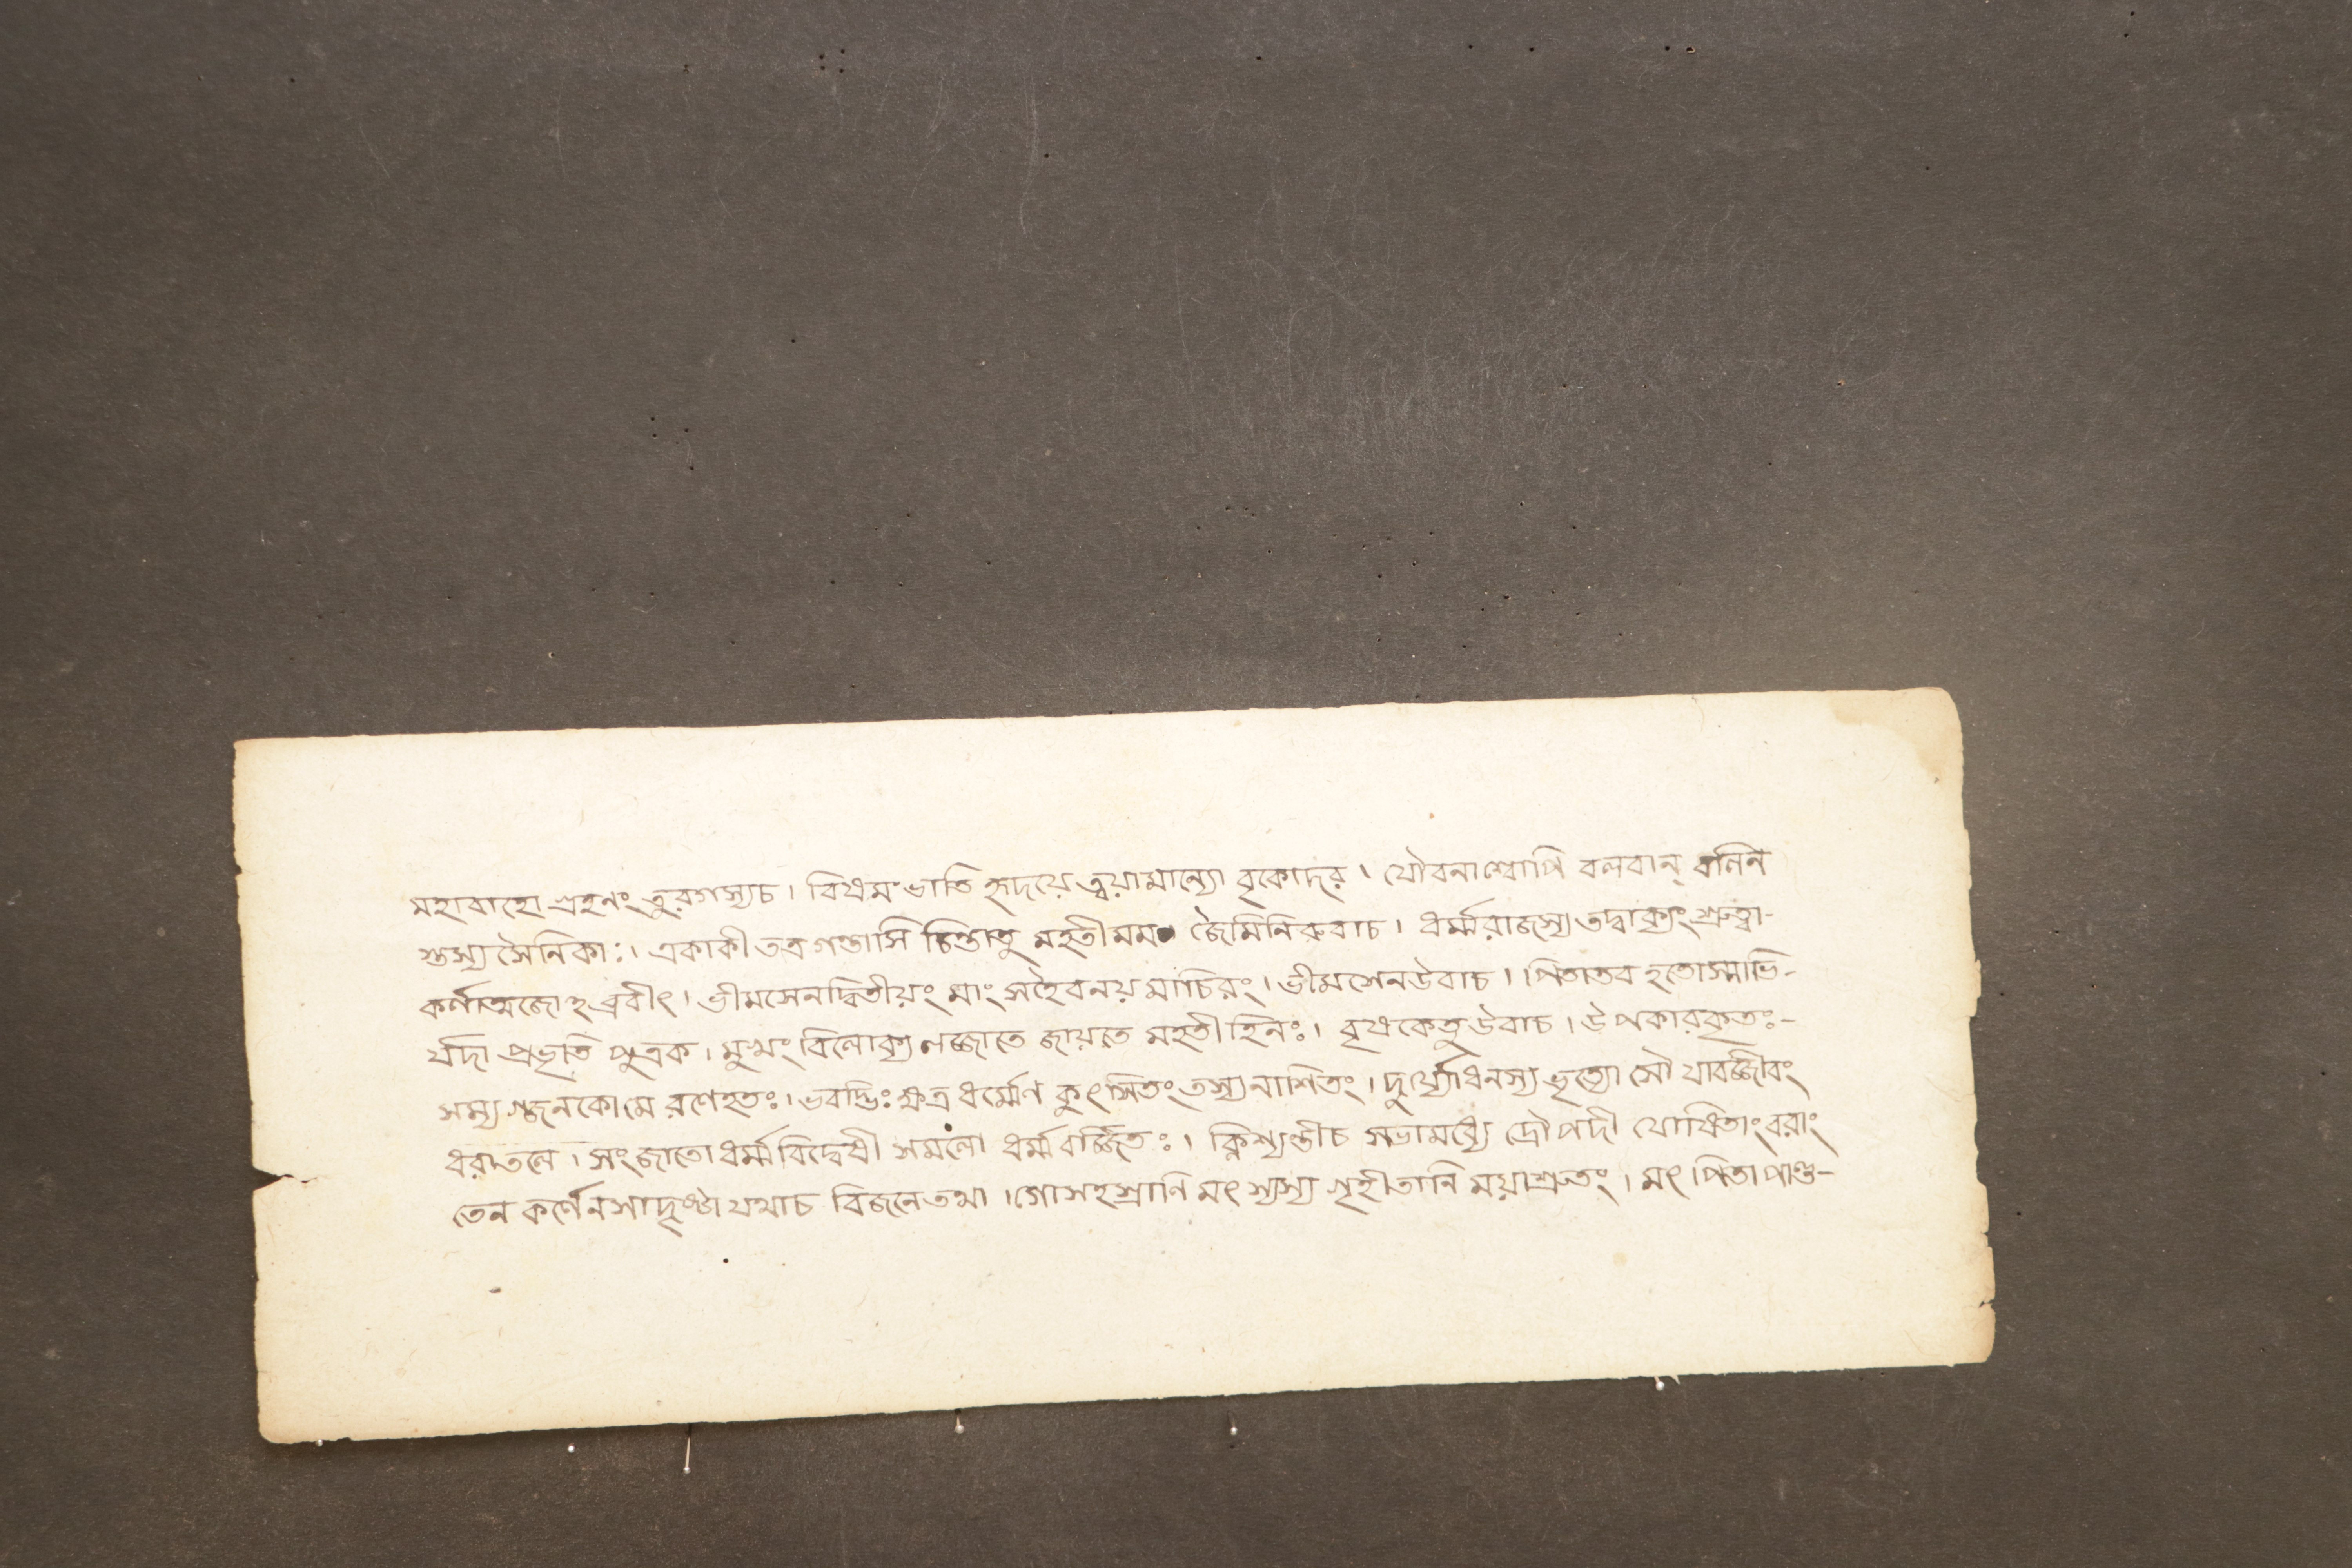 মহাবাহো গ্রহনং তুরগস্যচ। বিষমং ভাতি হৃদয়ে ত্বয়ামান্যো বৃকোদর। যৌবনাশ্বোপি বলবান্ বলিন
শ্তস্য সৈনিকাঃ। একাকী তত্র গন্তাসি চিন্তাতু মহতীমম জৈমিনিরুবাচ। ধর্ম্মরাজস্য তদ্বাক্যং শ্রুত্বা-
কর্ণাত্মজোহব্রবীৎ। ভীমসেনদ্বিতীয়ং মাং সহৈবনয় মাচিরং। ভীমসেনউবাচ। পিতাতব হতোস্মাভি-
র্যদা প্রভৃতি পুত্রক। মুখং বিলোক্য লজ্জাতে জায়তে মহতী হিনঃ। বৃষকেতু উবাচ। উপকারকৃতঃ-
সম্যগ্জনকো মে রণেহতঃ। ভবদ্ভিঃ ক্ষত্রধর্ম্মেণ কুৎসিতং তস্যনাশিতং। দুর্য্যোধনস্য ভৃত্যো সৌ যাবজ্জীবং
ধরাতলে। সংজাতো ধর্ম্মবিদ্বেষী সমলো ধর্ম্মবর্জ্জিতঃ। ক্লিশ্যন্তীচ সভামধ্যে দ্রৌপদী যোষিতাং বরাং
তেন কর্ণেনসাদৃষ্টা যথাচ বিজনেতথা। গোসহস্রাণি মৎস্যস্য গৃহীতানি ময়াশ্রুতং। মৎ পিতা পাণ্ডু-